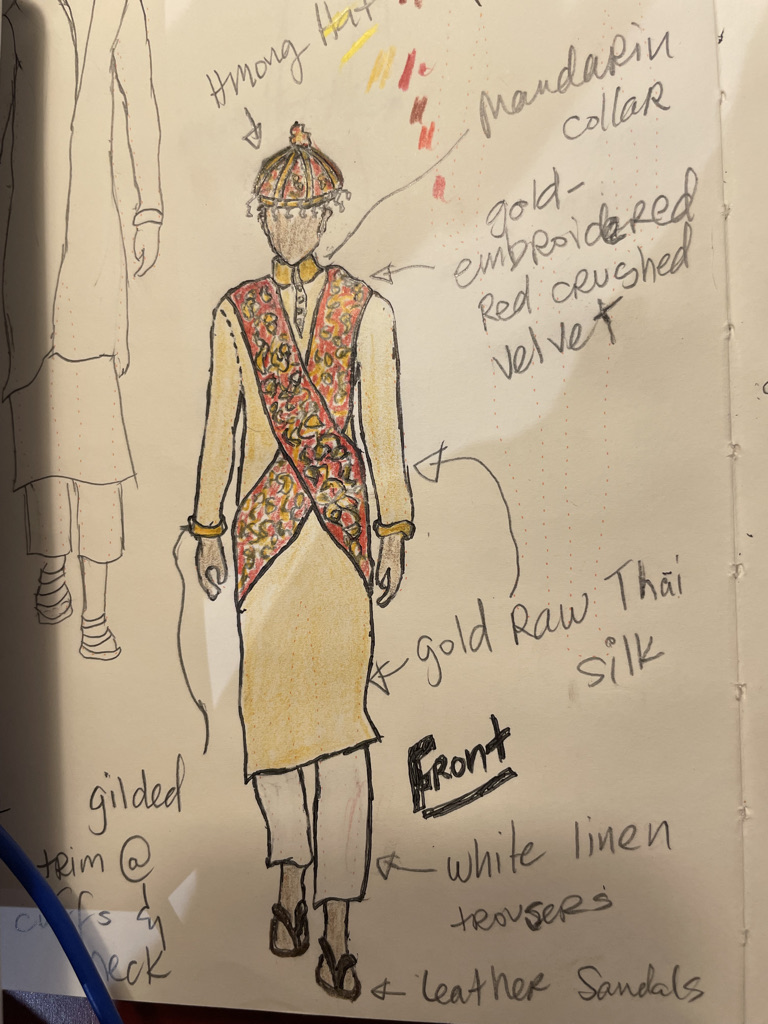 Hmong Hat
Mandarin
collar
gold-
embroidered
Red crushed
velvet
gold Raw Thai
silk
Front
gilded
trim @
cuffs &
neck
white linen
trousers
leather Sandals